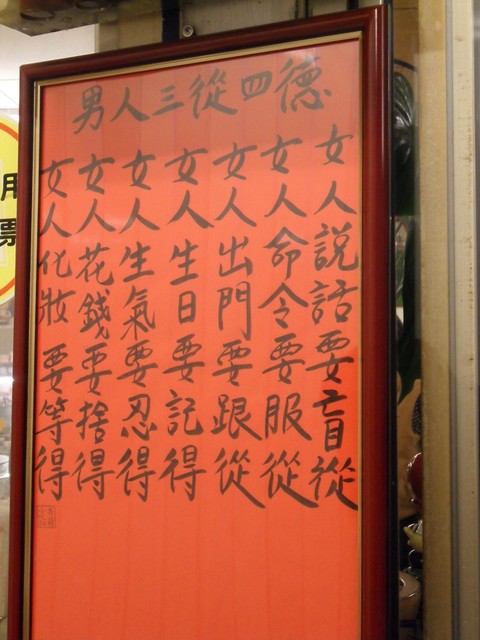 男人三從四德
女人說話要盲從
女人命令要服從
女人出門要跟從
女人生日要記得
女人生氣要忍得
女人花錢要捨得
女人化妝要等得
用
票